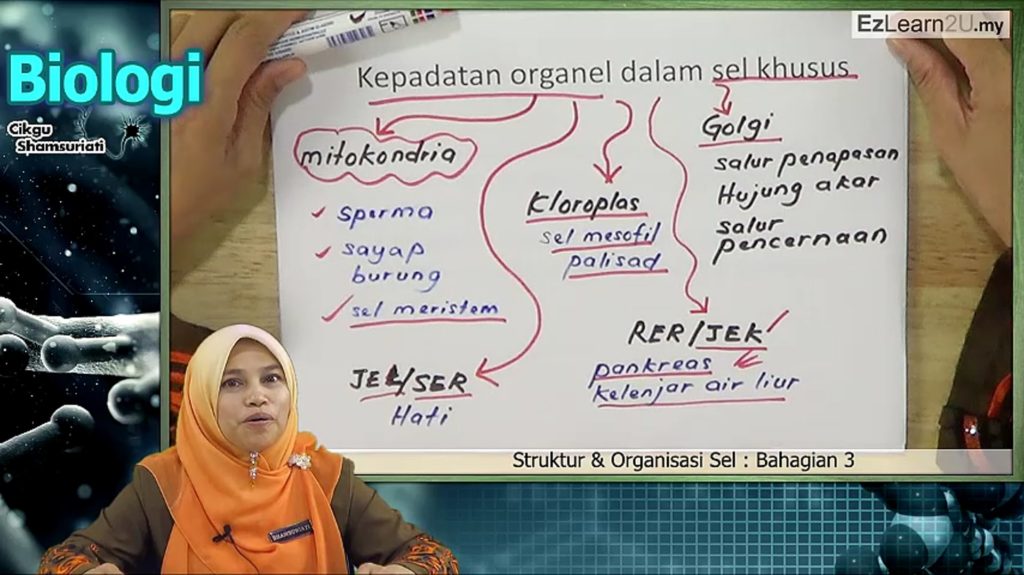 EzLearn2U.my
Biologi
Cikgu
Shamsuriati
Kepadatan organel dalam sel khusus
mitokondria
sperma
sayap
burung
sel meristem
JEL/SER
Hati
Kloroplas
sel mesofil
palisad
RER/JEK
pankreas
kelenjar air liur
Golgi
salur penapasan
Hujung akar
salur
pencernaan
Struktur & Organisasi Sel : Bahagian 3
SHAMSURIATI